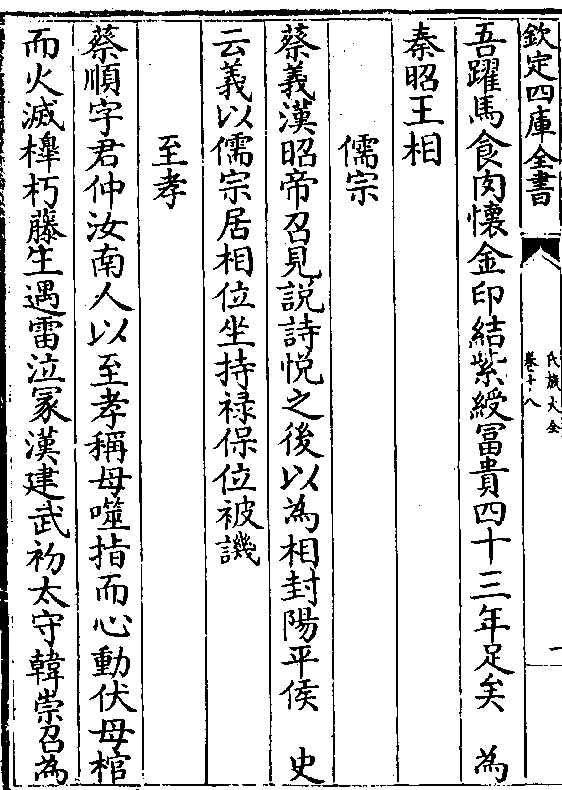 欽定四庫全書
氏族大全
卷十八
一
吾躍馬食肉懷金印結紫綬冨貴四十三年足矣 為
秦昭王相
儒宗
蔡義漢昭帝召見説詩悦之後以為相封陽平侯 史
云義以儒宗居相位坐持禄保位被譏
至孝
蔡順字君仲汝南人以至孝稱母噬指而心動伏母棺
而火滅橰朽藤生遇雷泣冢漢建武初太守韓崇召為